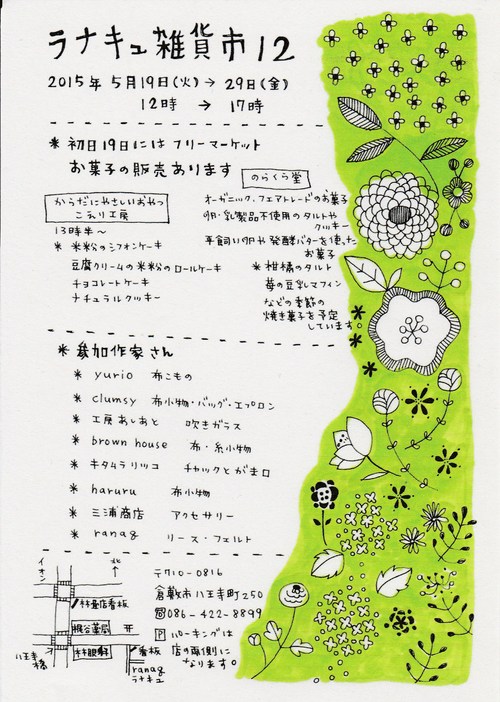 ラナキュ雑貨市12
2015年5月19日(火)→29日(金)
12時 → 17時
* 初日19日にはフリーマーケット
お菓子の販売あります
のらくら堂
オーガニック、フェアトレードのお菓子
卵・乳製品不使用のタルトや
クッキー
平飼い卵や発酵バターを使った
お菓子
* 柑橘のタルト
苺の豆乳マフィン
などの季節の
焼き菓子を予定
しています。
からだにやさしいおやつ
こより工房
13時半～
* 米粉のシフォンケーキ
豆腐クリームの米粉のロールケーキ
チョコレートケーキ
ナチュラルクッキー
* 参加作家さん
* yurio 布こもの
* clumsy 布小物・バッグ・エプロン
* 工房あしあと 吹きガラス
* brown house 布・糸小物
* キタムラリツコ チャックとがま口
* haruru 布小物
* 三浦商店 アクセサリー
* ranag リース・フェルト
イオン
北
看板
八王寺橋
看板
ranag
ラナキュ
〒710-0816
倉敷市八王寺町250
☎086-422-8899
P パーキングは
店の両側に
なります。